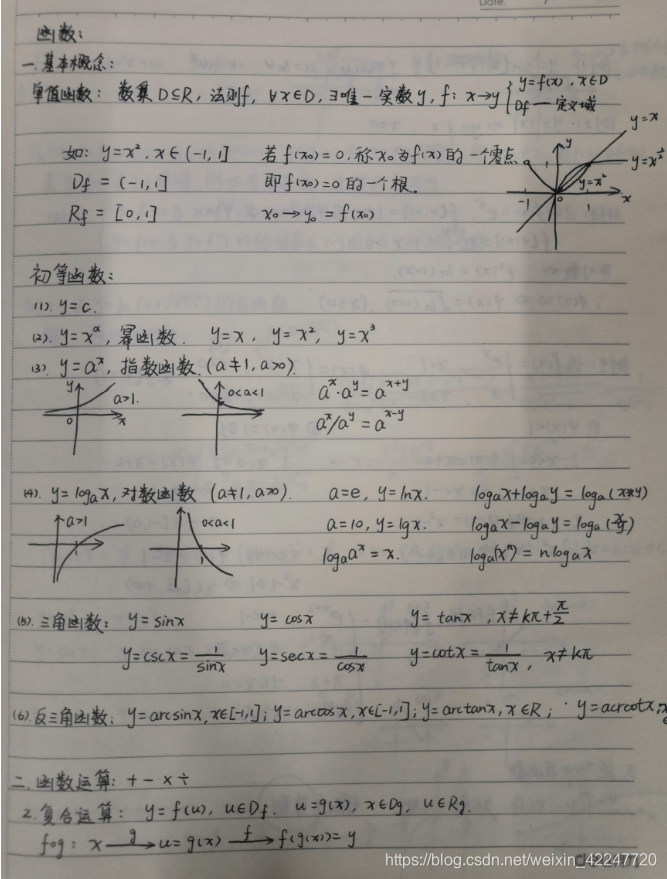 Date.
函数:
一.基本概念:
单值函数: 数集D⊆R, 法则f, ∀x∈D, ∃唯一实数y, f: x→y { y=f(x), x∈D
Df — 定义域
如: y=x², x∈(-1,1] 若f(x₀)=0, 称x₀为f(x)的一个零点
Df = (-1,1] 即f(x₀)=0的一个根.
Rf = [0,1] x₀→y₀=f(x₀)
y y=x
1 y=x^½
y=x²
-1 0 1 x
初等函数:
(1). y=c.
(2). y=x^α, 幂函数. y=x, y=x², y=x³
(3). y=a^x, 指数函数. (a≠1, a>0).
y a>1. 0 x 0<a<1 a^x·a^y=a^(x+y)
a^x/a^y=a^(x-y)
(4). y=logₐx, 对数函数 (a≠1, a>0). a=e, y=lnx. logₐx+logₐy=logₐ(x*y)
a>1 0<a<1 1 a=10, y=lgx. logₐx-logₐy=logₐ(x/y)
logₐa^x=x. logₐ(xⁿ)=nlogₐx
(5). 三角函数: y=sinx y=cosx y=tanx, x≠kπ+π/2
y=cscx=1/sinx y=secx=1/cosx y=cotx=1/tanx, x≠kπ
(6). 反三角函数: y=arcsinx, x∈[-1,1]; y=arccosx, x∈[-1,1]; y=arctanx, x∈R; y=acrcotx,
二.函数运算: + - × ÷
2.复合运算: y=f(u), u∈Df. u=g(x), x∈Dg, u∈Rg.
fog: x →g u=g(x) →f f(g(x))=y
https://blog.csdn.net/weixin_42247720